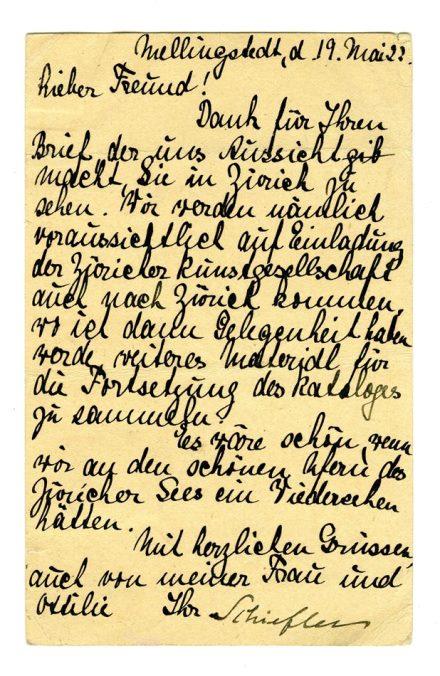 Mellingstedt, d 19. Mai 22.
Lieber Freund!
Dank für Ihren
Brief, der uns Aussicht gib
macht, Sie in Zürich zu
sehen. Wir werden nämlich
voraussichtlich auf Einladung
der Züricher Kunstgesellschaft
auch nach Zürich kommen,
wo ich dann Gelegenheit haben
werde, weiteres Material für
die Fortsetzung des Kataloges
zu sammeln.
Es wäre schön, wenn
wir an den schönen Ufern des
Züricher Sees ein Wiedersehen
hätten.
Mit herzlichen Grüssen,
auch von meiner Frau und
Ottilie Ihr Schiefler